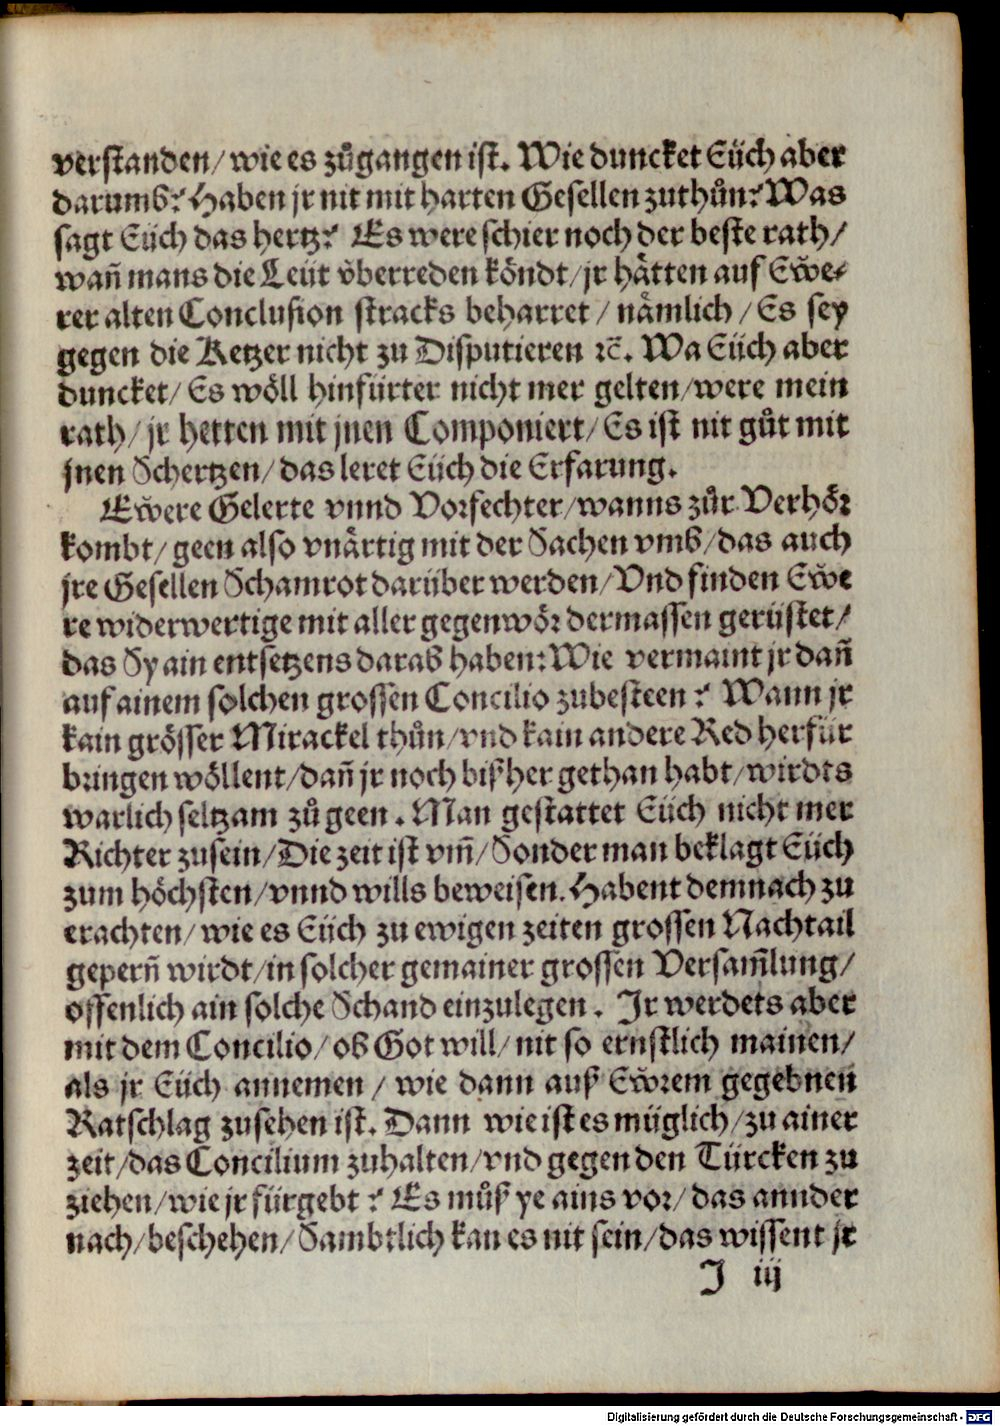 verstanden/ wie es zůgangen ist. Wie duncket Eüch aber
darumb? Haben jr nit mit harten Gesellen zuthůn? Was
sagt Eüch das hertz? Es were schier noch der beste rath/
wañ mans die Leüt v̊berreden köndt/ jr hätten auf Ew̆e-
rer alten Conclusion stracks beharret / nämlich / Es sey
gegen die Ketzer nicht zu Disputieren ꝛc̃. Wa Eüch aber
duncket/ Es wöll hinfürter nicht mer gelten/ were mein
rath/ jr hetten mit jnen Componiert/ Es ist nit gůt mit
jnen Schertzen/ das leret Eüch die Erfarung.
Ew̆ere Gelerte vnnd Vorfechter/ wanns zůr Verhör
kombt/ geen also vnärtig mit der Sachen vmb/ das auch
jre Gesellen Schamrot darüber werden/ Vnd finden Ew̆e
re widerwertige mit aller gegenwör dermassen gerüstet/
das Sy ain entsetzens darab haben: Wie vermaint jr dañ
auf ainem solchen grossen Concilio zubesteen? Wann jr
kain grösser Mirackel thůn/ vnd kain andere Red herfür
bringen wöllent/ dañ jr noch bißher gethan habt/ wirdts
warlich seltzam zů geen. Man gestattet Eüch nicht mer
Richter zusein/ Die zeit ist vm̃/ Sonder man beklagt Eüch
zum höchsten/ vnnd wills beweisen. Habent demnach zu
erachten/ wie es Eüch zu ewigen zeiten grossen Nachtail
geperñ wirdt/ in solcher gemainer grossen Versam̃lung/
offenlich ain solche Schand einzulegen. Ir werdets aber
mit dem Concilio/ ob Got will/ nit so ernstlich mainen/
als jr Eüch annemen / wie dann auß Ew̆rem gegebnen
Ratschlag zusehen ist. Dann wie ist es müglich/ zu ainer
zeit/ das Concilium zuhalten/ vnd gegen den Türcken zu
ziehen/ wie jr fürgebt? Es můß ye ains vor/ das annder
nach/ beschehen/ Sambtlich kan es nit sein/ das wissent jr
J iij
Digitalisierung gefördert durch die Deutsche Forschungsgemeinschaft - DFG